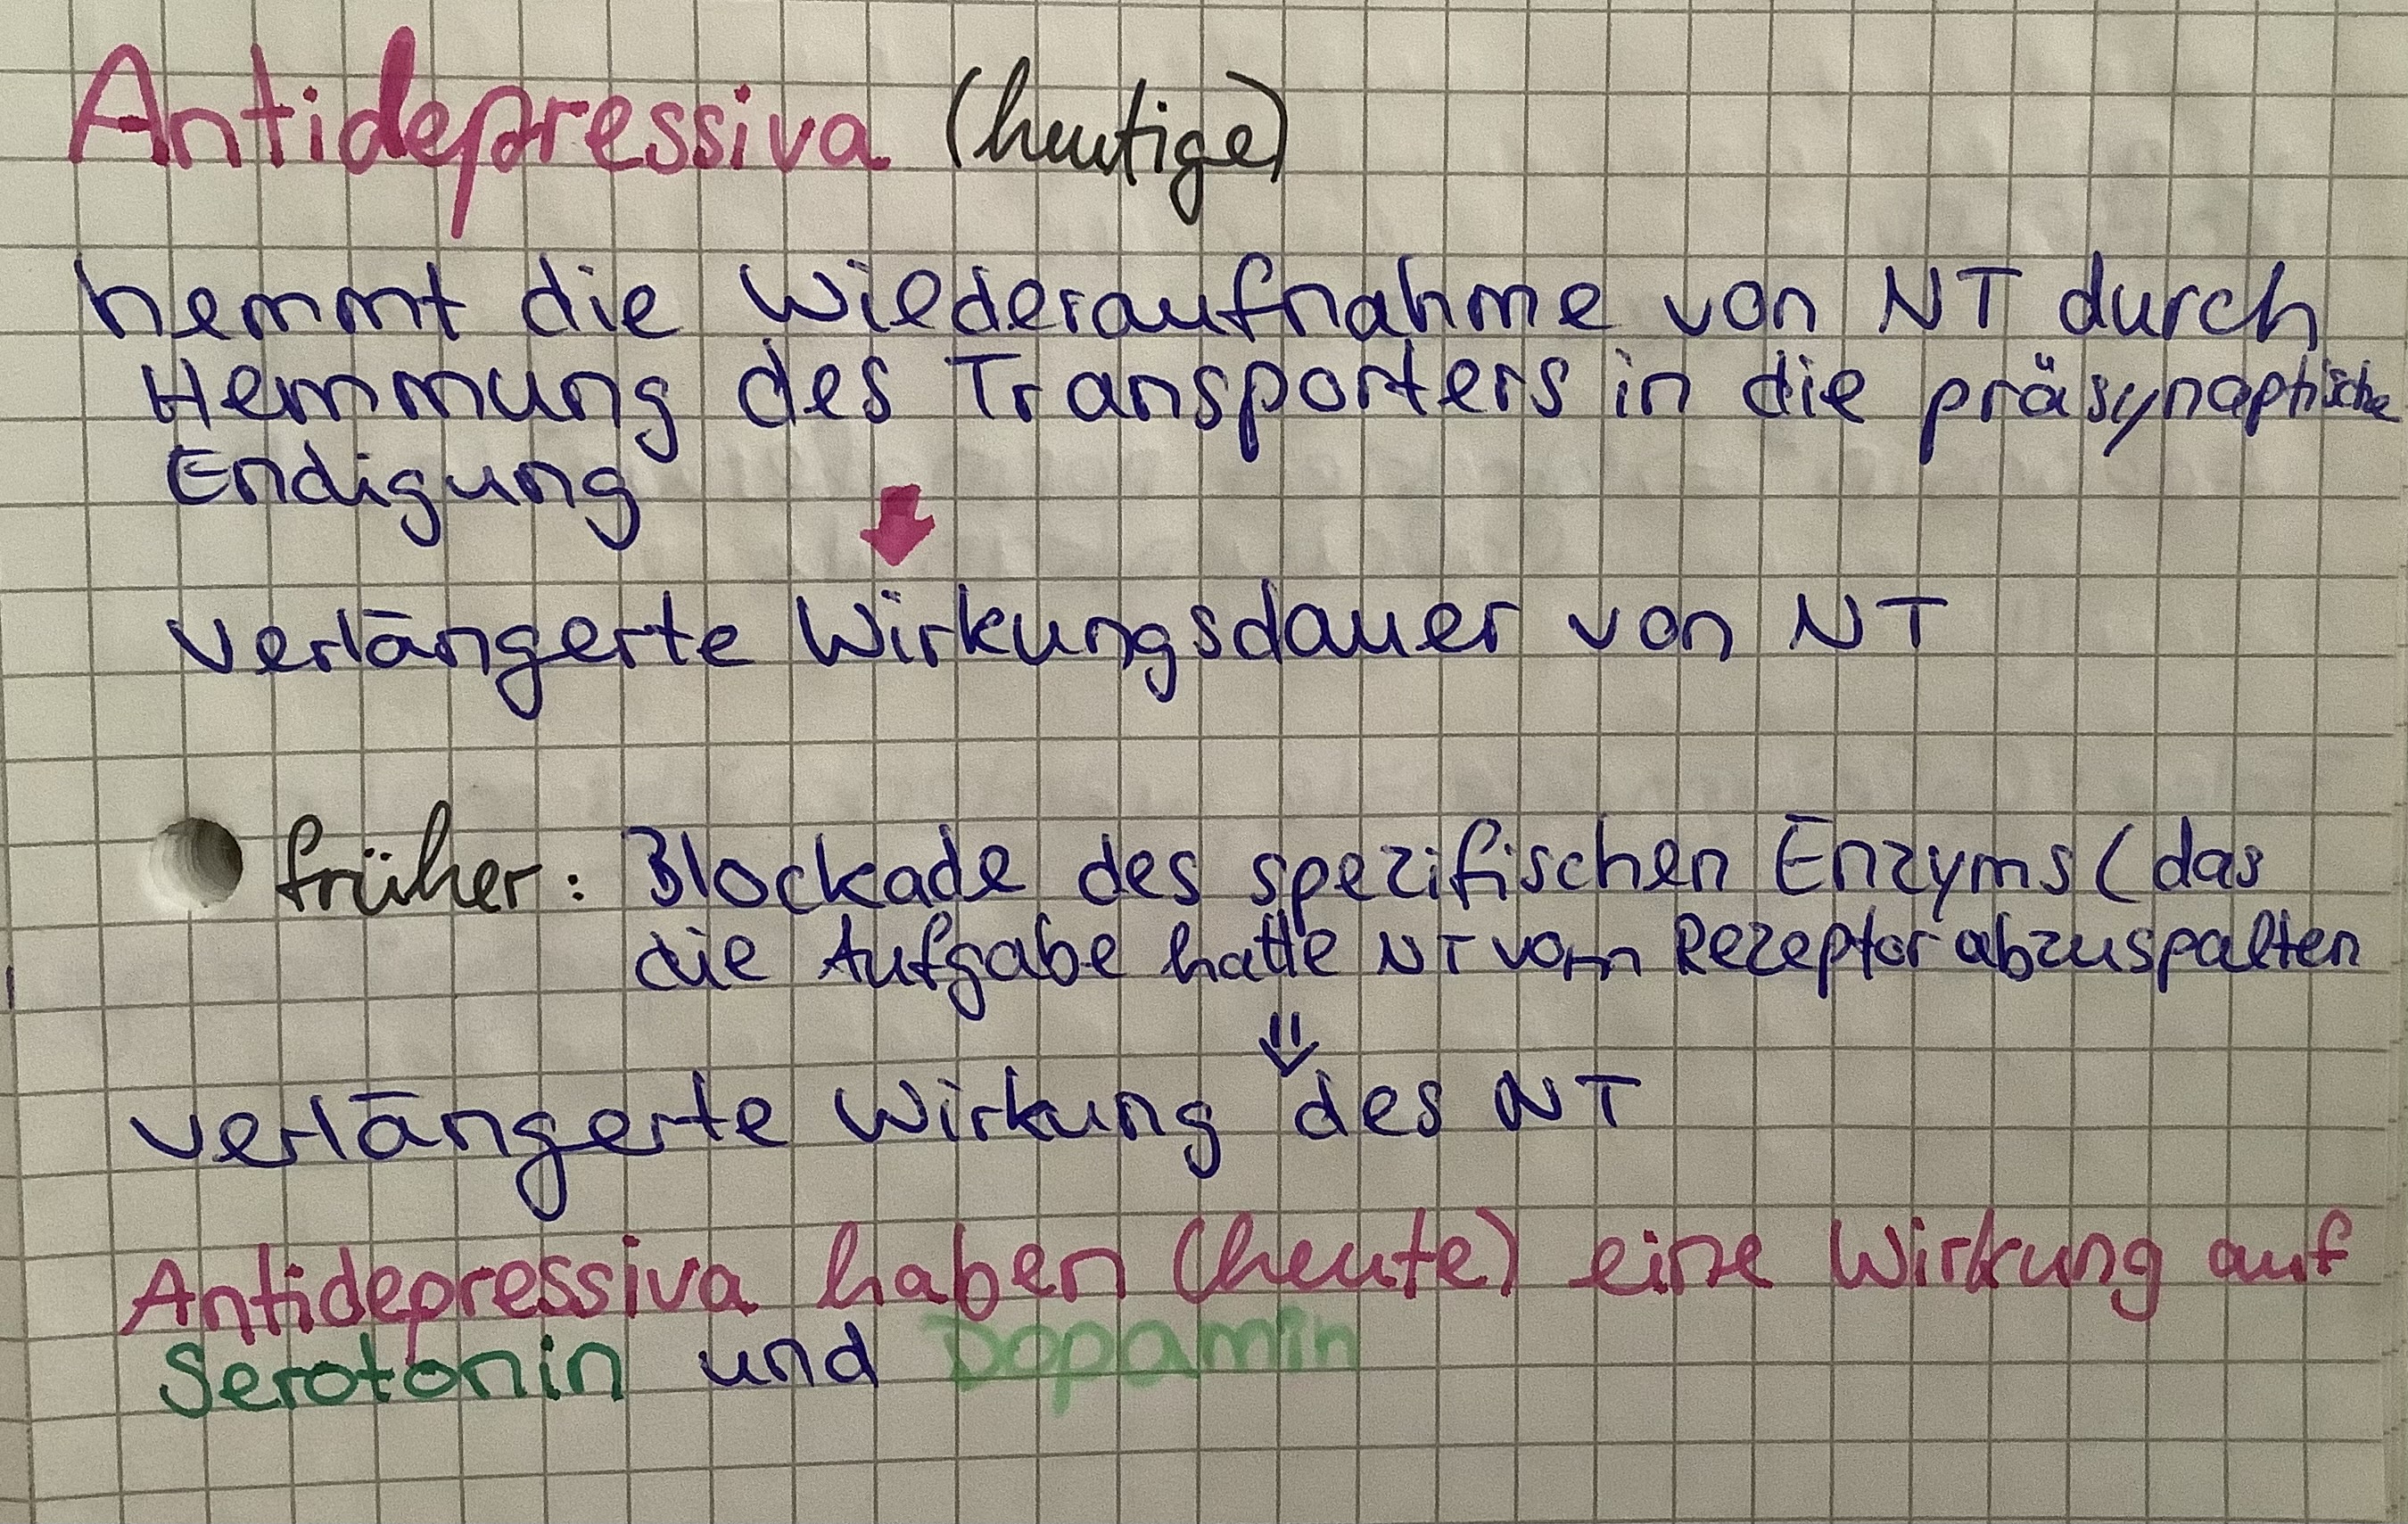 Antidepressiva (heutige)
hemmt die Wiederaufnahme von NT durch
Hemmung des Transporters in die präsynaptische
Endigung
verlängerte Wirkungsdauer von NT
früher: Blockade des spezifischen Enzyms (das
die Aufgabe hatte NT vom Rezeptor abzuspalten
verlängerte Wirkung des NT
Antidepressiva haben (heute) eine Wirkung auf
Serotonin und Dopamin